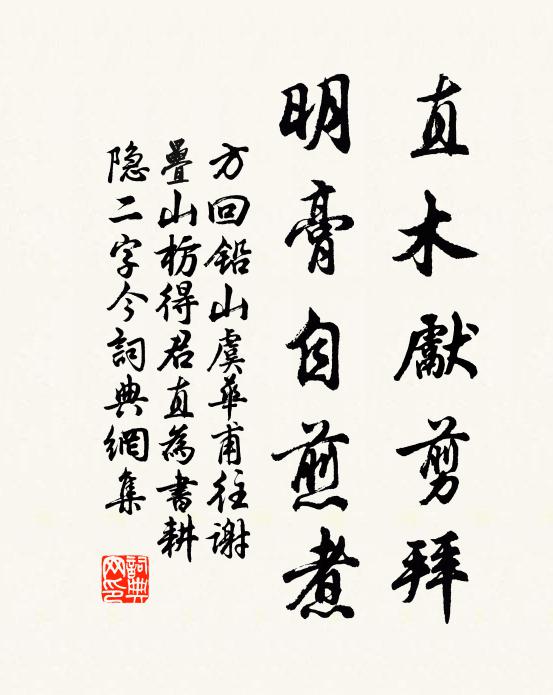 直木獻剪拜
明膏自煎煮
方回鉛山虞華甫往謝
疊山枋得君直為書耕
隐二字今詞典網集
詞典
网印